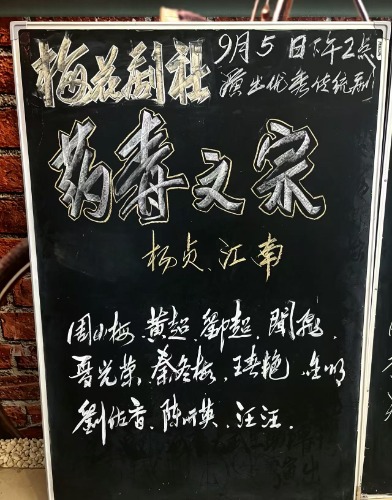 梅花剧社
9月5日下午2点
演出优秀传统剧
药毒文宗
杨贞、江南
周小梅、黄超、劉超、闻
晋光荣、秦冬梅、王春艳、
劉佐香、陈丽英、汪汪、